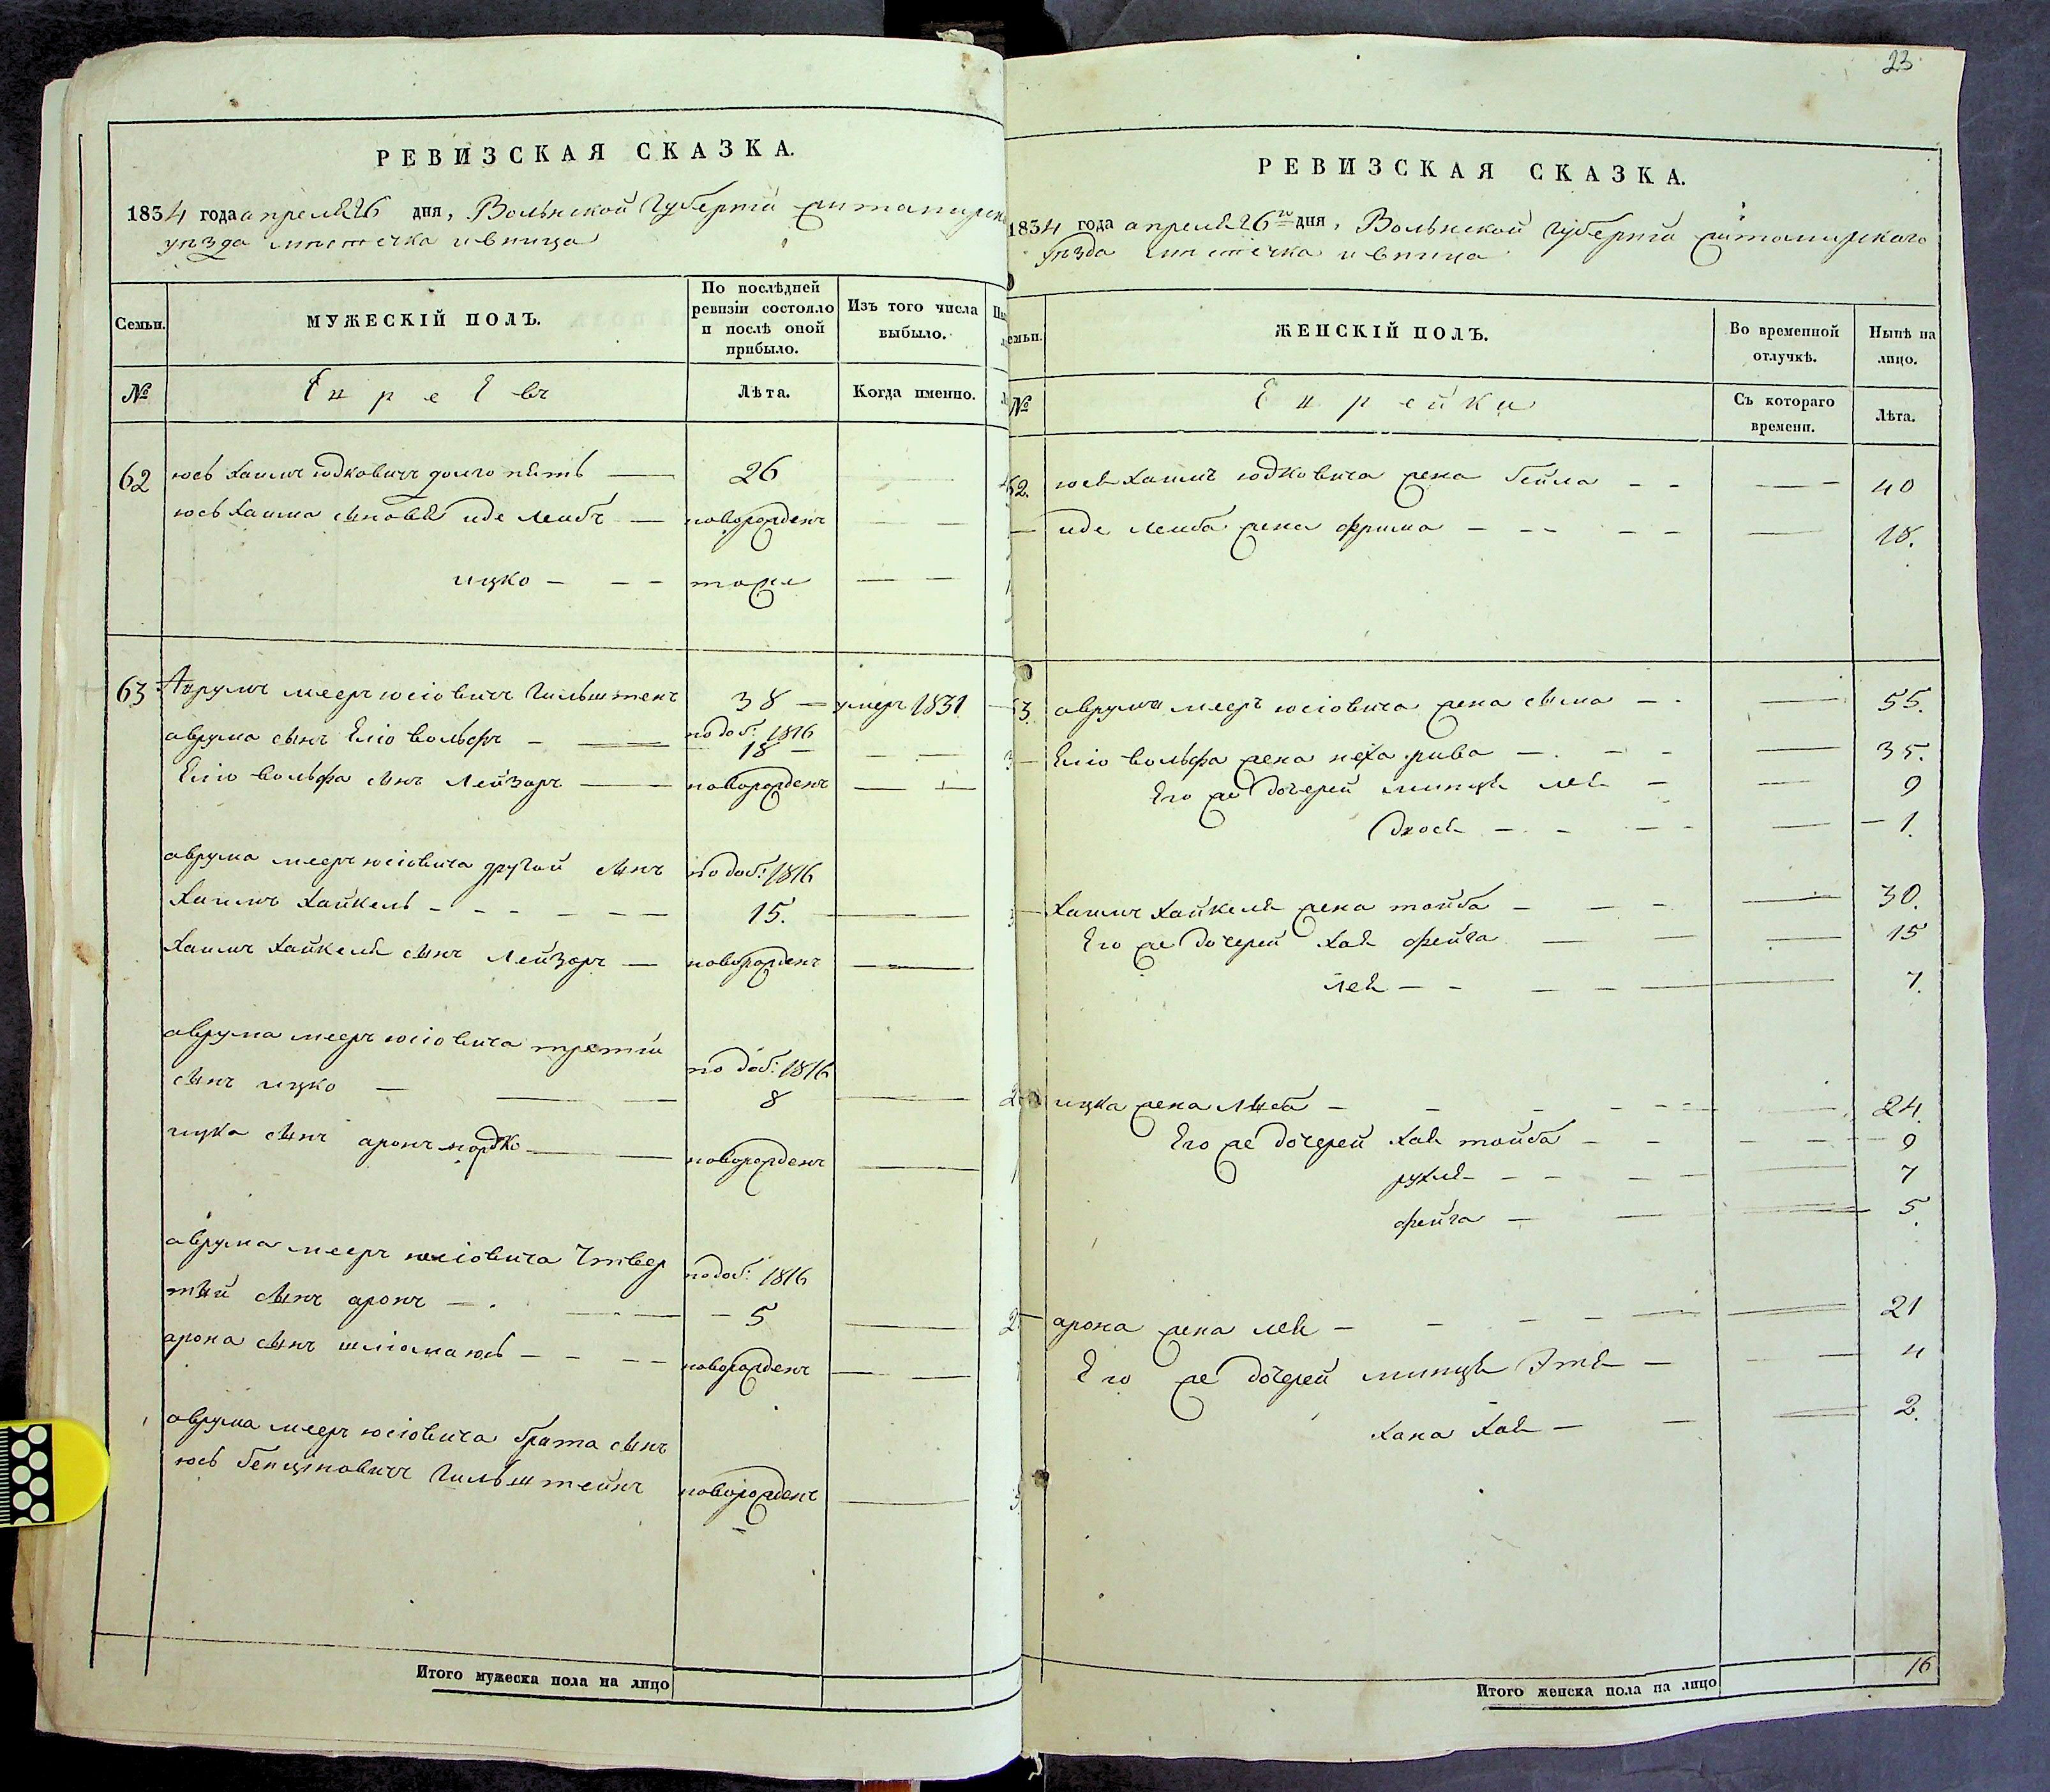 РЕВИЗСКАЯ СКАЗКА.
1834 года апреля 26 дня, Волынской Губернiи Житомирск
уѣзда местечка ивница
Семьи.
МУЖЕСКІЙ ПОЛЪ.
По послѣдней ревизіи состояло и послѣ оной прибыло.
Изъ того числа выбыло.
№
Евреевъ
Лѣта.
Когда именно.
62 юсь хаимъ юдковичъ долгопятъ — 26
юсь хаима сыновья иде леибъ — новорожденъ — —
ицко — — — тоже — —
63 Аврумъ мееръ юсiовичъ Гильштенъ 38 — умеръ 1831
аврума сынъ Елiо вольфъ — — по доб: 1816
18 — — —
Елiо вольфа сынъ Лейзоръ — новорожденъ — —
аврума мееръ юсiовича другой сынъ по доб: 1816
Хаимъ Хайкель — — — — — — 15. —
Хаимъ Хайкеля сынъ Лейзоръ — новорожденъ —
аврума мееръ юсiовича третiй
сынъ ицко — — — по доб: 1816
8 —
ицка сынъ аронъ мордко — новорожденъ —
аврума мееръ юсiовича Четвер
тый сынъ аронъ — . — — по доб: 1816
— 5 —
арона сынъ шлiома юсь — — — — новорожденъ — —
аврума мееръ юсiовича брата сынъ
юсь бенцiоновичъ Гильштейнъ новорожденъ —
Итого мужеска пола на лицо
23
РЕВИЗСКАЯ СКАЗКА.
1834 года апреля 26го дня, Волынской Губернiи житомирского
уѣзда местечка ивница
емьи.
ЖЕНСКІЙ ПОЛЪ.
Во временной отлучкѣ.
Нынѣ на лицо.
№
Еврейки
Съ котораго времени.
Лѣта.
62. юся Хаимъ юдковича жена бейла — — — — 40
— иде леиба жена фрима — — — — — — 18.
63. аврумъ мееръ юсiовича жена сыма — - — 55.
— Елiо вольфа жена неха рива — . — — — 35.
Его же дочерей минця лея — — 9
двося — . - — - — — 1.
Хаимъ Хайкеля жена тойба — — - — 30.
Его же дочерей Хая фейга — — — 15
лея — - — — — 7.
ицка жена либа — — — — — — — 24
Его же дочерей Хая тойба — — — — — 9
рухля — — — — — — 7
фейга — — — 5
арона жена лея — — — — — — 21
Его же дочерей минця Этя — — — 4
Хана Хая — — — 2.
Итого женска пола на лицо 16